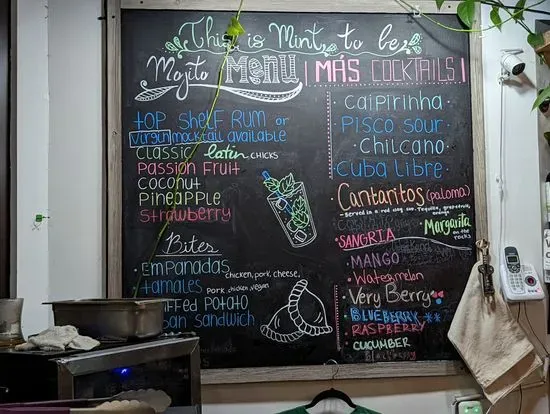 This is Mint to be
Mojito MENU
TOP SHELF RUM or
virgin mocktail available
CLASSIC latin CHICKS
PASSION FRUIT
COCONUT
PINEAPPLE
STRAWBERRY
Bites
EMPANADAS chicken, pork, cheese,
tamales Pork, chicken, vegan
POTATO
SANDWICH
¡MÁS COCKTAILS!
CAIPIRINHA
PISCO SOUR
CHILCANO
CUBA LIBRE
Cantaritos (paloma)
- Served in a red clay cup. Tequila, grapefruit,
orange
Margarita
on the
rocks
SANGRIA
MANGO
Watermelon
Very Berry
BLUEBERRY **
RASPBERRY
CUCUMBER
Blackberry